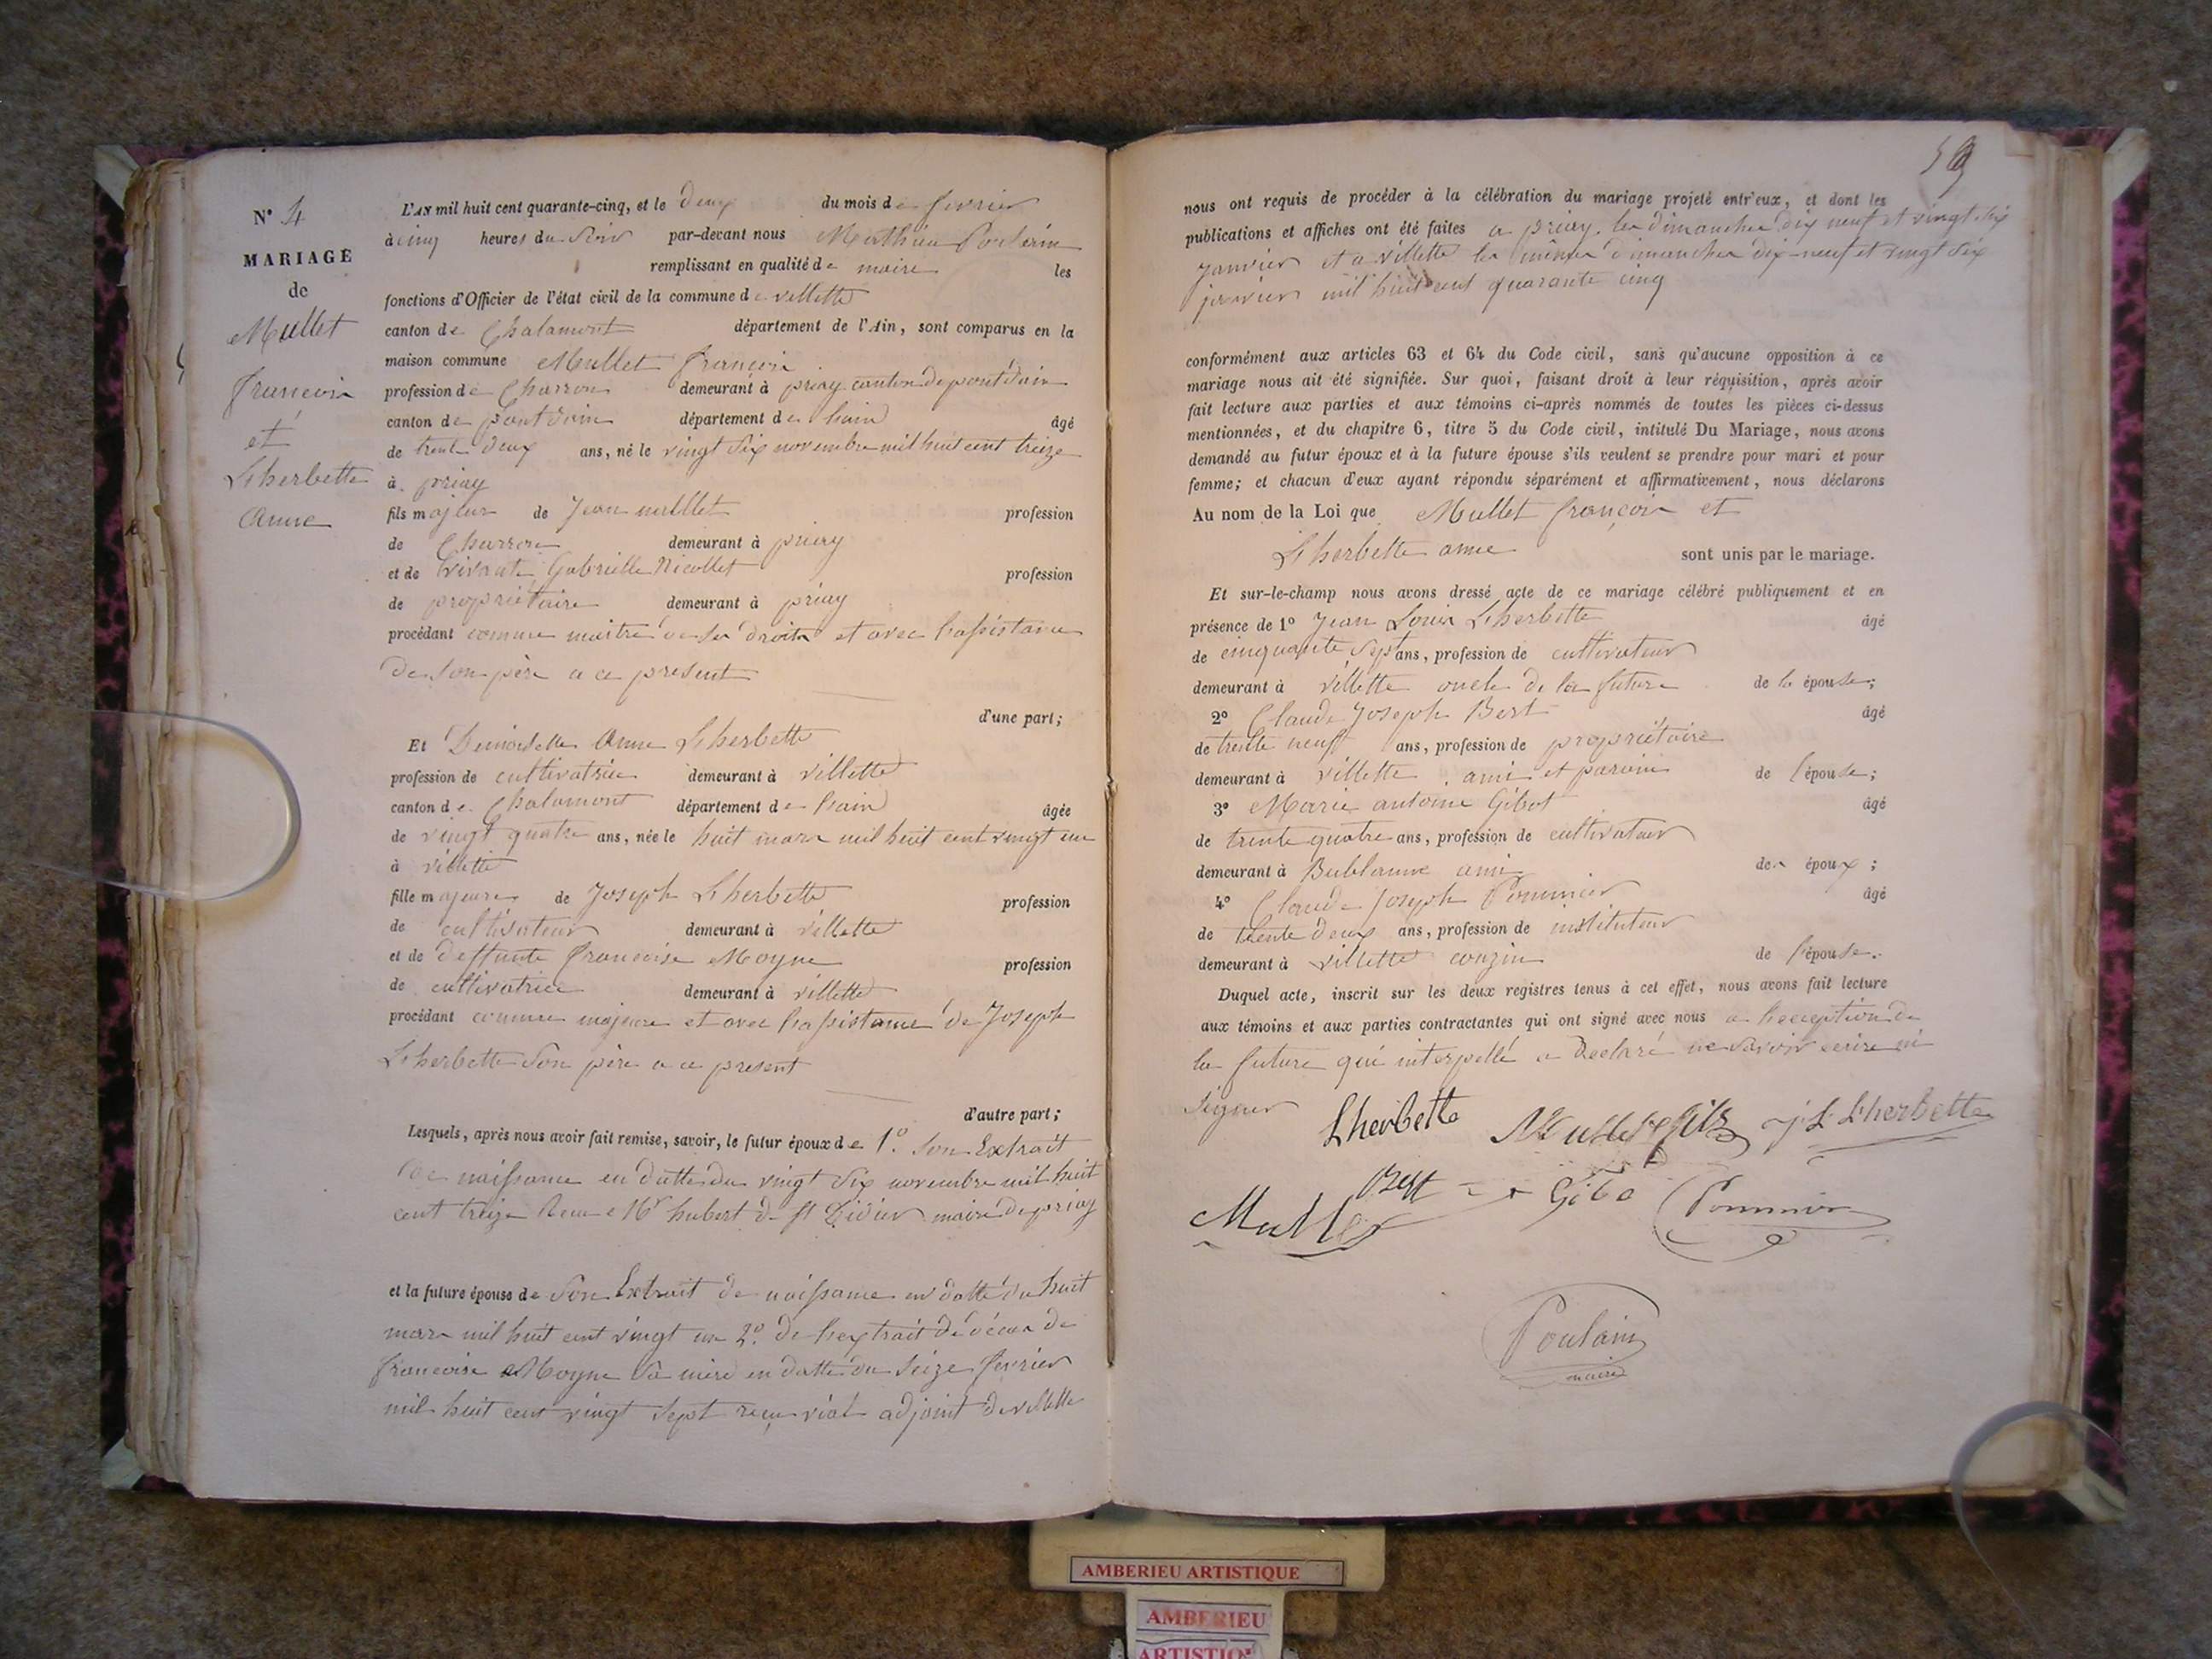 N° 4
MARIAGE
de
Mullet
françois
et
Lherbette
Anne
L'AN mil huit cent quarante-cinq, et le deux du mois de fevrier
à cinq heures du soir par-devant nous Mathieu Poulain
remplissant en qualité de maire les
fonctions d'Officier de l'état civil de la commune de villette
canton de Chalamont département de l'Ain, sont comparus en la
maison commune Mullet françois
profession de Charron demeurant à priay canton de pont d'ain
canton de pont d'ain département de lain âgé
de trente deux ans, né le vingt six novembre mil huit cent treize
à priay
fils majeur de Jean mullet profession
de Charron demeurant à priay
et de vivante Gabrielle Nicollet profession
de propriétaire demeurant à priay
procédant comme maitre de ses droits et avec lassistance
de son père a ce present
d'une part;
Et Demoiselle Anne Lherbette
profession de cultivatrice demeurant à villette
canton de Chalamont département de lain âgée
de vingt quatre ans, née le huit mars mil huit cent vingt un
à villette
fille majeure de Joseph Lherbette profession
de cultivateur demeurant à villette
et de deffunte francoise Moyne profession
de cultivatrice demeurant à villette
procédant comme majeure et avec lassistance de Joseph
Lherbette son père a ce present
d'autre part;
Lesquels, après nous avoir fait remise, savoir, le futur époux de 1°. son Extrait
de naissance en datte du vingt six novembre mil huit
cent treize hubert de st Didier maire de priay
et la future épouse de son Extrait de naissance en datte du huit
mars mil huit cent vingt un 2°. de lextrait de décès de
francoise Moyne sa mère en datte du seize fevrier
mil huit cent vingt sept reçu viol adjoint de villette
59
nous ont requis de procéder à la célébration du mariage projeté entr'eux, et dont les
publications et affiches ont été faites a priay les dimanches dix neuf et vingt six
janvier et a villette les mêmes dimanches dix-neuf et vingt six
janvier mil huit cent quarante cinq
conformément aux articles 63 et 64 du Code civil, sans qu'aucune opposition à ce
mariage nous ait été signifiée. Sur quoi, faisant droit à leur réquisition, après avoir
fait lecture aux parties et aux témoins ci-après nommés de toutes les pièces ci-dessus
mentionnées, et du chapitre 6, titre 5 du Code civil, intitulé Du Mariage, nous avons
demandé au futur époux et à la future épouse s'ils veulent se prendre pour mari et pour
femme; et chacun d'eux ayant répondu séparément et affirmativement, nous déclarons
Au nom de la Loi que Mullet françois et
Lherbette anne sont unis par le mariage.
Et sur-le-champ nous avons dressé acte de ce mariage célébré publiquement et en
présence de 1° Jean Louis Lherbette âgé
de cinquante sept ans, profession de cultivateur
demeurant à villette oncle de la future de l'épouse;
2° Claude Joseph Bert âgé
de trente neuf ans, profession de propriétaire
demeurant à villette ami et parain de l'épouse;
3° Marie antoine Gibot âgé
de trente quatre ans, profession de cultivateur
demeurant à Bublanne ami des époux;
4° Claude Joseph Pommier âgé
de trente deux ans, profession de instituteur
demeurant à villette couzin de l'épouse.
Duquel acte, inscrit sur les deux registres tenus à cet effet, nous avons fait lecture
aux témoins et aux parties contractantes qui ont signé avec nous a lexception de
la future qui interpellé a declaré ne savoir ecrire ni
signer
Lherbette Mullet fils J L Lherbette
Bert Gibo Pommier
Mullet
Poulain
maire
AMBERIEU ARTISTIQUE
AMBERIEU
ARTISTIQ